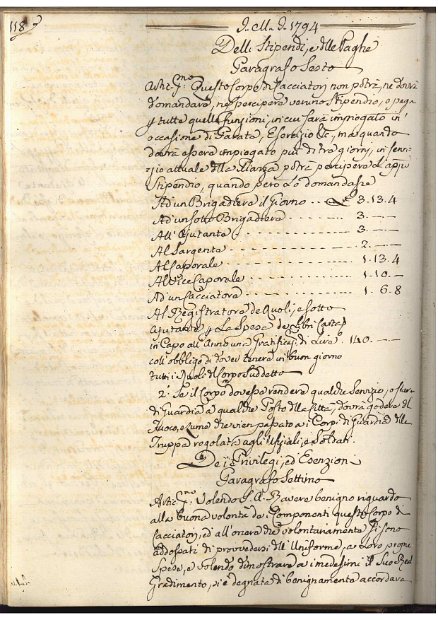 118
1794
Delli Stipendj, e delle Paghe
Paragrafo Sesto
Questo Corpo di Cacciatori non potrà, ne dovrà
domandare, ne percepire veruno Stipendio, o paga
tutte quelle funzioni, in cui sarà impiegato in
occasione di Parata, Esercizio &c., ma quando
dovrà essere impiegato più di tre giorni, in servi-
zio attuale della Piazza potrà percipere li appiè
Stipendio, quando però Lo domandasse
Ad un Brigadiere il Giorno 3. 13. 4
Ad un Sotto Brigadiere 3. —
All' Ajutante 3. —
Al Sargente 2. —
Al Caporale 1. 13. 4
Al Vice Caporale 1. 10. —
Ad un Cacciatore 1. 6. 8
Al Registratore de Ruoli, e sotto
Ajutante, Le Spese de Libri Carta
in Capo all' Anno una Gratificaz. di Lire 140. —
coll' obbligo di dover tenere in buon giorno
tutti i Ruoli del Corpo suddetto
2. Se il Corpo dovesse rendere qualche Servizio, o star
di Guardia a qualche Posto della Città, dovrà godere del
fuoco, e lume che vien passato a i Corpi di Guardia delle
Truppe regolate agli Uffiziali, e Soldati
De i Privilegj, ed Esenzion
Paragrafo Settimo
Volendo S. A. R. avere benigno riguardo
alla buona volontà de i Componenti questo Corpo di
Cacciatori, ed all' onere che volontariamente si sono
addossati di provvedersi dell' Uniforme, a Loro proprie
Spese, e volendo dimostrare a i medesimi il Suo Real
Gradimento, si è degnata di benignamente accordare